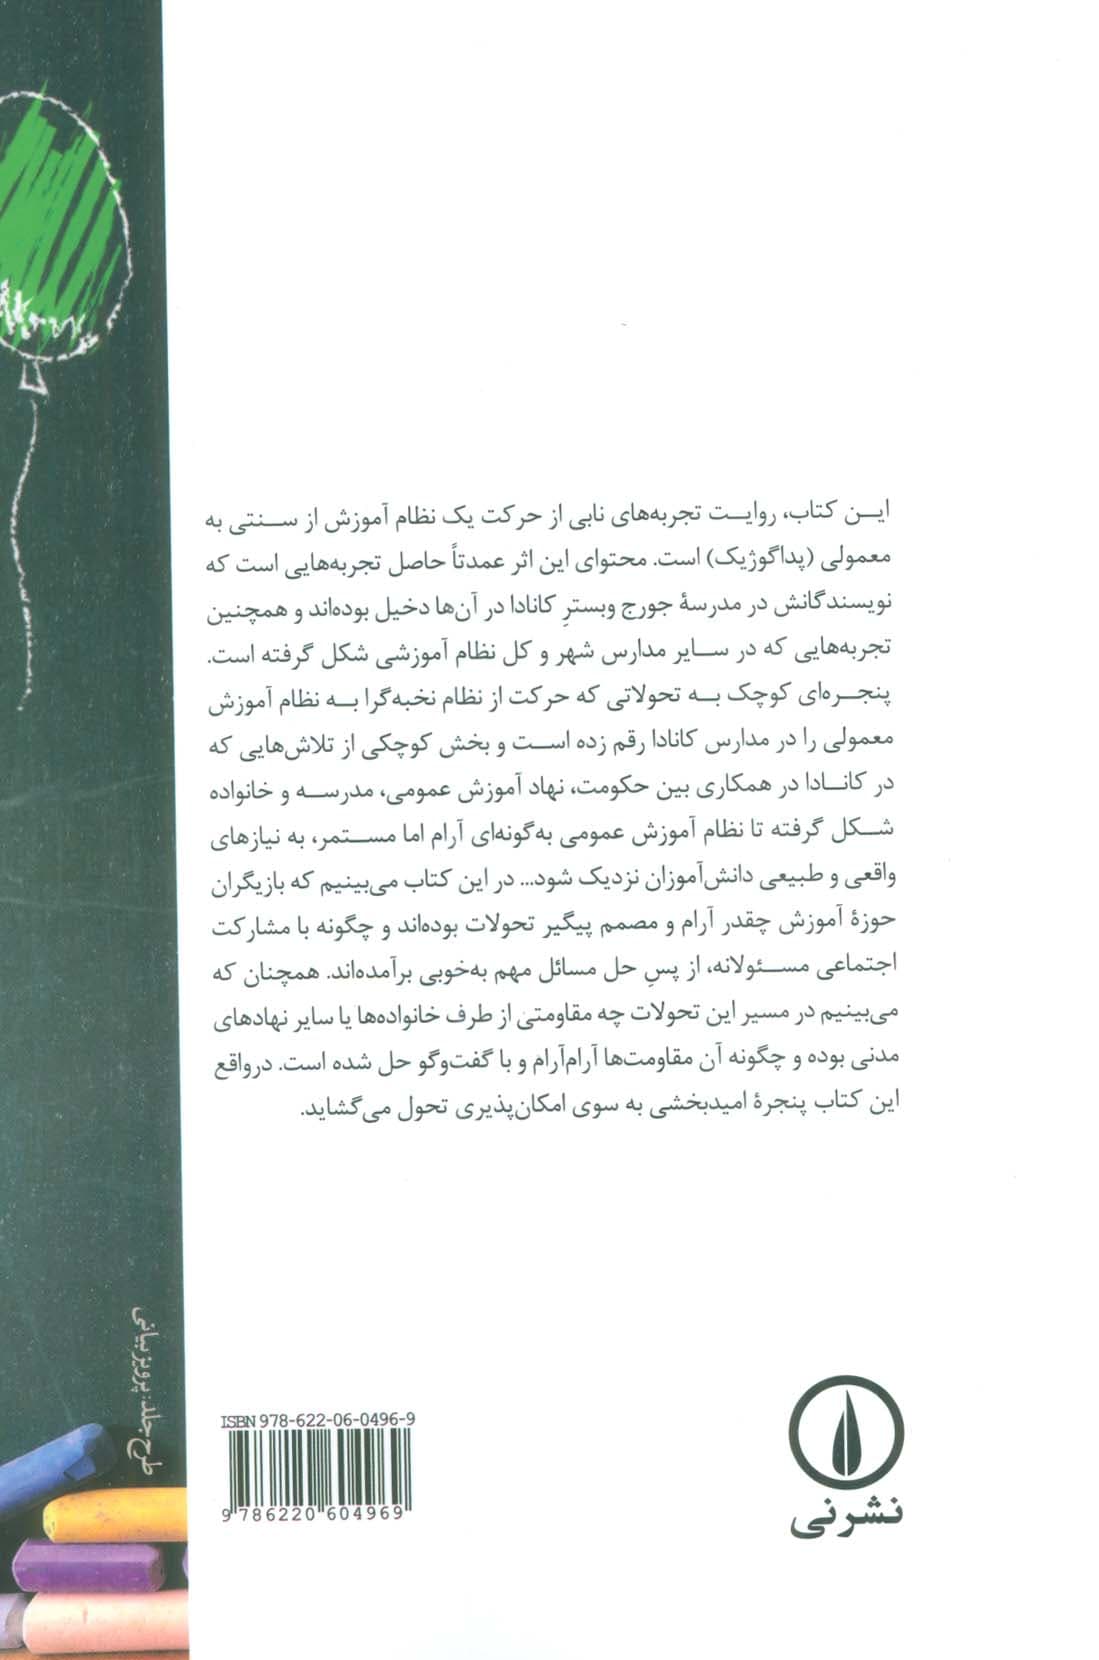 ایـن کتاب، روایـت تجربه‌های نابی از حرکت یک نظام آموزش از سـنتی به
معمولی (پداگوژیک) است. محتوای این اثر عمدتاً حاصل تجربه‌هایی است که
نویسندگانش در مدرسهٔ جورج وبسترِ کانادا در آن‌ها دخیل بوده‌اند و همچنین
تجربه‌هایی که در سـایر مدارس شهر و کل نظام آموزشی شکل گرفته است.
پنجـره‌ای کوچک بـه تحولاتی که حرکت از نظام نخبه‌گرا بـه نظام آموزش
معمولی را در مدارس کانادا رقم زده اسـت و بخش کوچکی از تلاش‌هایی که
در کانـادا در همکاری بین حکومت، نهاد آموزش عمومی، مدرسـه و خانواده
شـکل گرفته تا نظام آموزش عمومی به‌گونه‌ای آرام اما مسـتمر، به نیازهای
واقعی و طبیعی دانش‌آموزان نزدیک شود... در این کتاب می‌بینیم که بازیگران
حوزهٔ آموزش چقدر آرام و مصمم پیگیر تحولات بوده‌اند و چگونه با مشارکت
اجتماعی مسـئولانه، از پسِ حل مسائل مهم به‌خوبی برآمده‌اند. همچنان که
می‌بینیم در مسیر این تحولات چه مقاومتی از طرف خانواده‌ها یا سایر نهادهای
مدنی بوده و چگونه آن مقاومت‌ها آرام‌آرام و با گفت‌وگو حل شده است. درواقع
این کتاب پنجرهٔ امیدبخشی به سوی امکان‌پذیری تحول می‌گشاید.
طرح جلد: پرویز بیانی
ISBN 978-622-06-0496-9
9 786220 604969
نشرنی